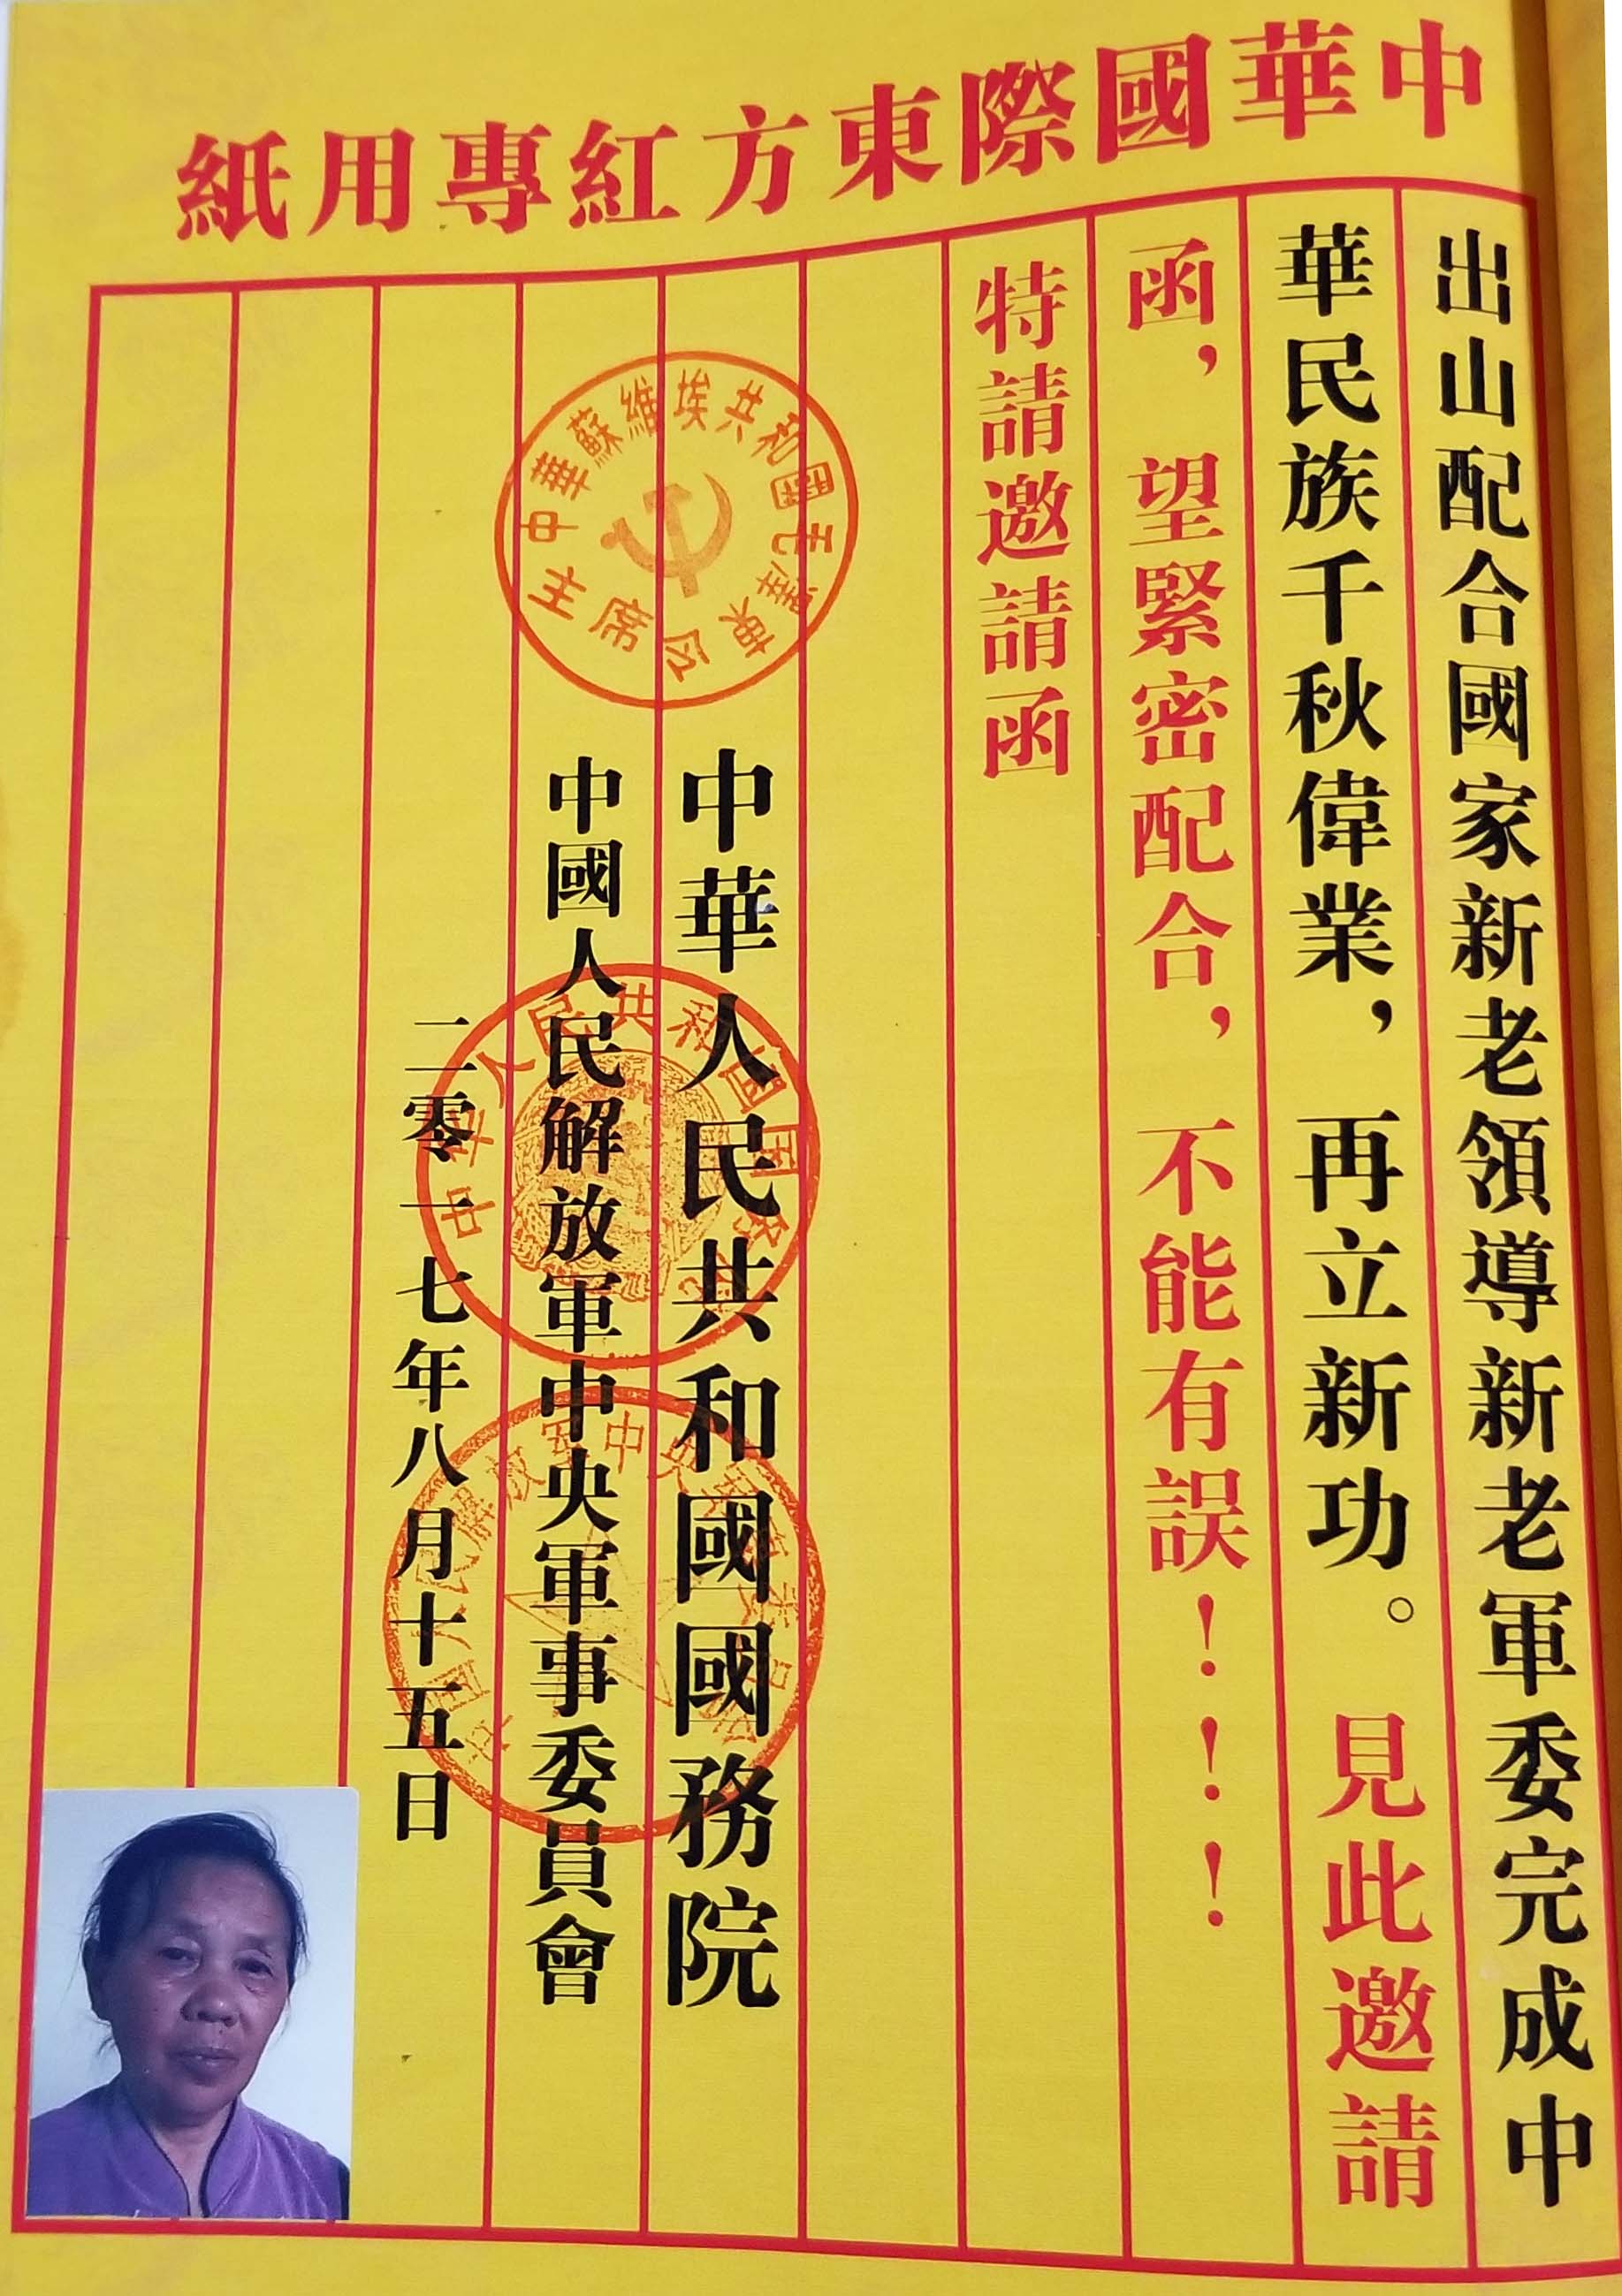 中華國際東方紅專用紙
出山配合國家新老領導新老軍委完成中
華民族千秋偉業，再立新功。見此邀請
函，望緊密配合，不能有誤！！！
特請邀請函
中華人民共和國國務院
中國人民解放軍中央軍事委員會
二零一七年八月十五日
中華蘇維埃共和國毛澤東
主席令
中华人民共和国国务院